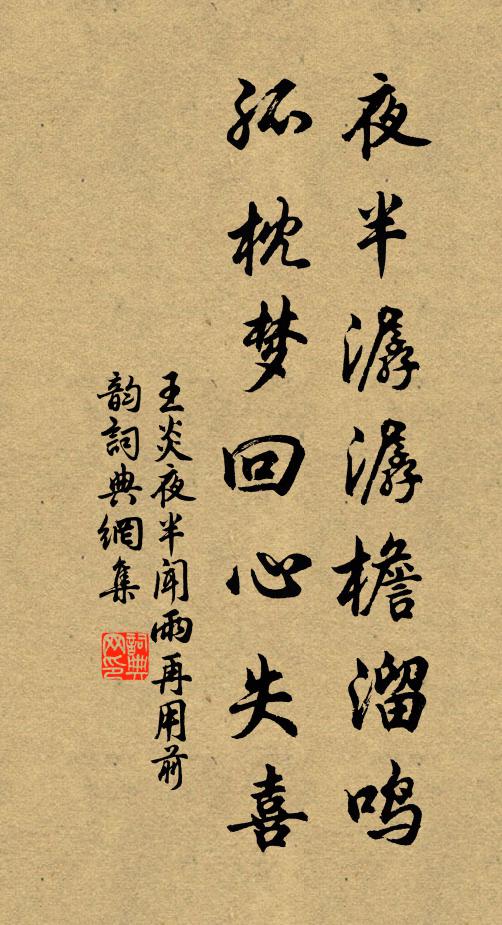 夜半潺潺檐溜鸣
孤枕梦回心失喜
王炎夜半闻雨再用前
韵词典网集
词典
网印